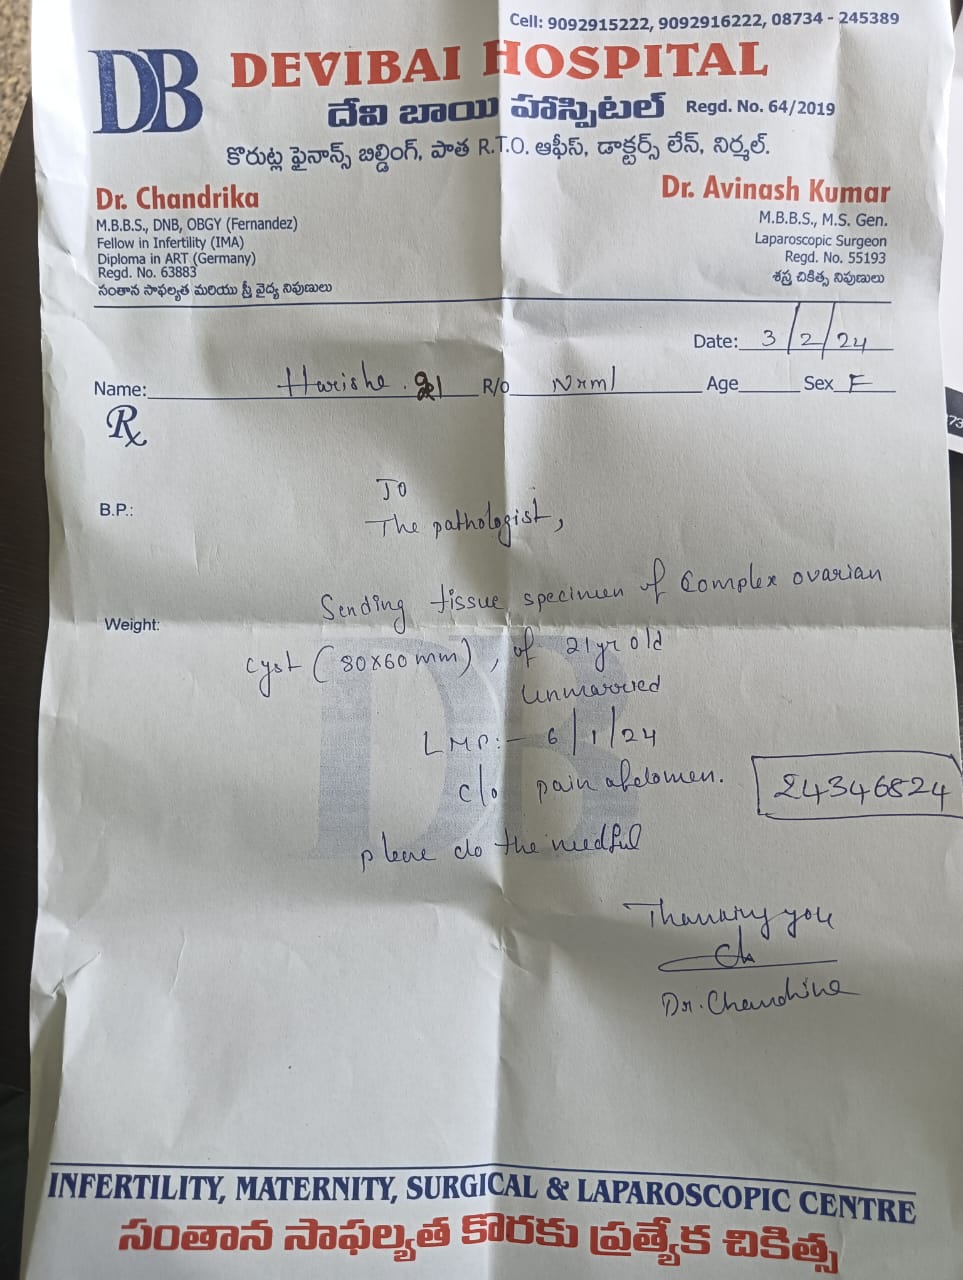 Cell: 9092915222, 9092916222, 08734 - 245389
DB DEVIBAI HOSPITAL
దేవి బాయి హాస్పిటల్ Regd. No. 64/2019
కొరుట్ల ఫైనాన్స్ బిల్డింగ్, పాత R.T.O. ఆఫీస్, డాక్టర్స్ లేన్, నిర్మల్.
Dr. Chandrika
M.B.B.S., DNB, OBGY (Fernandez)
Fellow in Infertility (IMA)
Diploma in ART (Germany)
Regd. No. 63883
సంతాన సాఫల్యత మరియు స్త్రీ వైద్య నిపుణులు
Dr. Avinash Kumar
M.B.B.S., M.S. Gen.
Laparoscopic Surgeon
Regd. No. 55193
శస్త్ర చికిత్స నిపుణులు
Date: 3/2/24
Name: Harishe. R/o Nrml Age Sex F
Rx
B.P.:
To
The pathologist,
Weight:
Sending tissue specimen of Complex ovarian
cyst (80x60 mm), of 21 yr old
Unmarried
LMP:- 6/1/24
c/o pain abdomen.
24346824
please do the needful
Thanking you
Dr. Chandrika
DB
INFERTILITY, MATERNITY, SURGICAL & LAPAROSCOPIC CENTRE
సంతాన సాఫల్యత కొరకు ప్రత్యేక చికిత్స